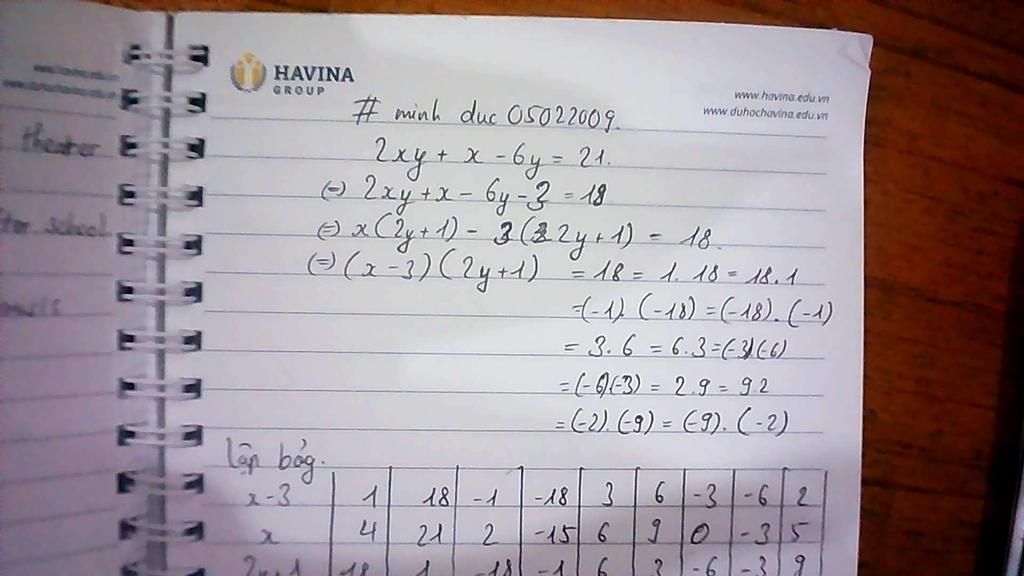 www.havina.edu.vn
HAVINA
GROUP
www.havina.edu.vn
www.duhochavina.edu.vn
# minh duc 05022009.
theater
2xy + x - 6y = 21.
(=) 2xy + x - 6y - 3 = 18
school
(=) x(2y+1) - 3(2y+1) = 18.
(=) (x-3)(2y+1) = 18 = 1.18 = 18.1
=(-1).(-18) = (-18).(-1)
= 3.6 = 6.3 = (-3)(-6)
=(-6)(-3) = 2.9 = 9.2
=(-2).(-9) = (-9).(-2)
lập bảg.
x-3 1 18 -1 -18 3 6 -3 -6 2
x 4 21 2 -15 6 9 0 -3 5
2y+1 18 1 -18 -1 6 3 -6 -3 9